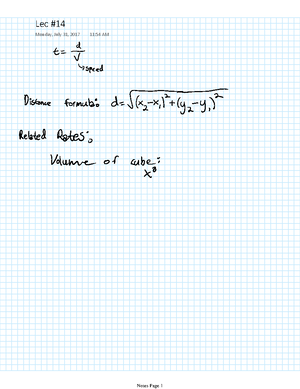 Lec #14
Monday, July 31, 2017 11:54 AM
t = d/v
↳speed
Distance formula: d=√(x₂-x₁)²+(y₂-y₁)²
Related Rates:
Volume of cube:
x³
Notes Page 1